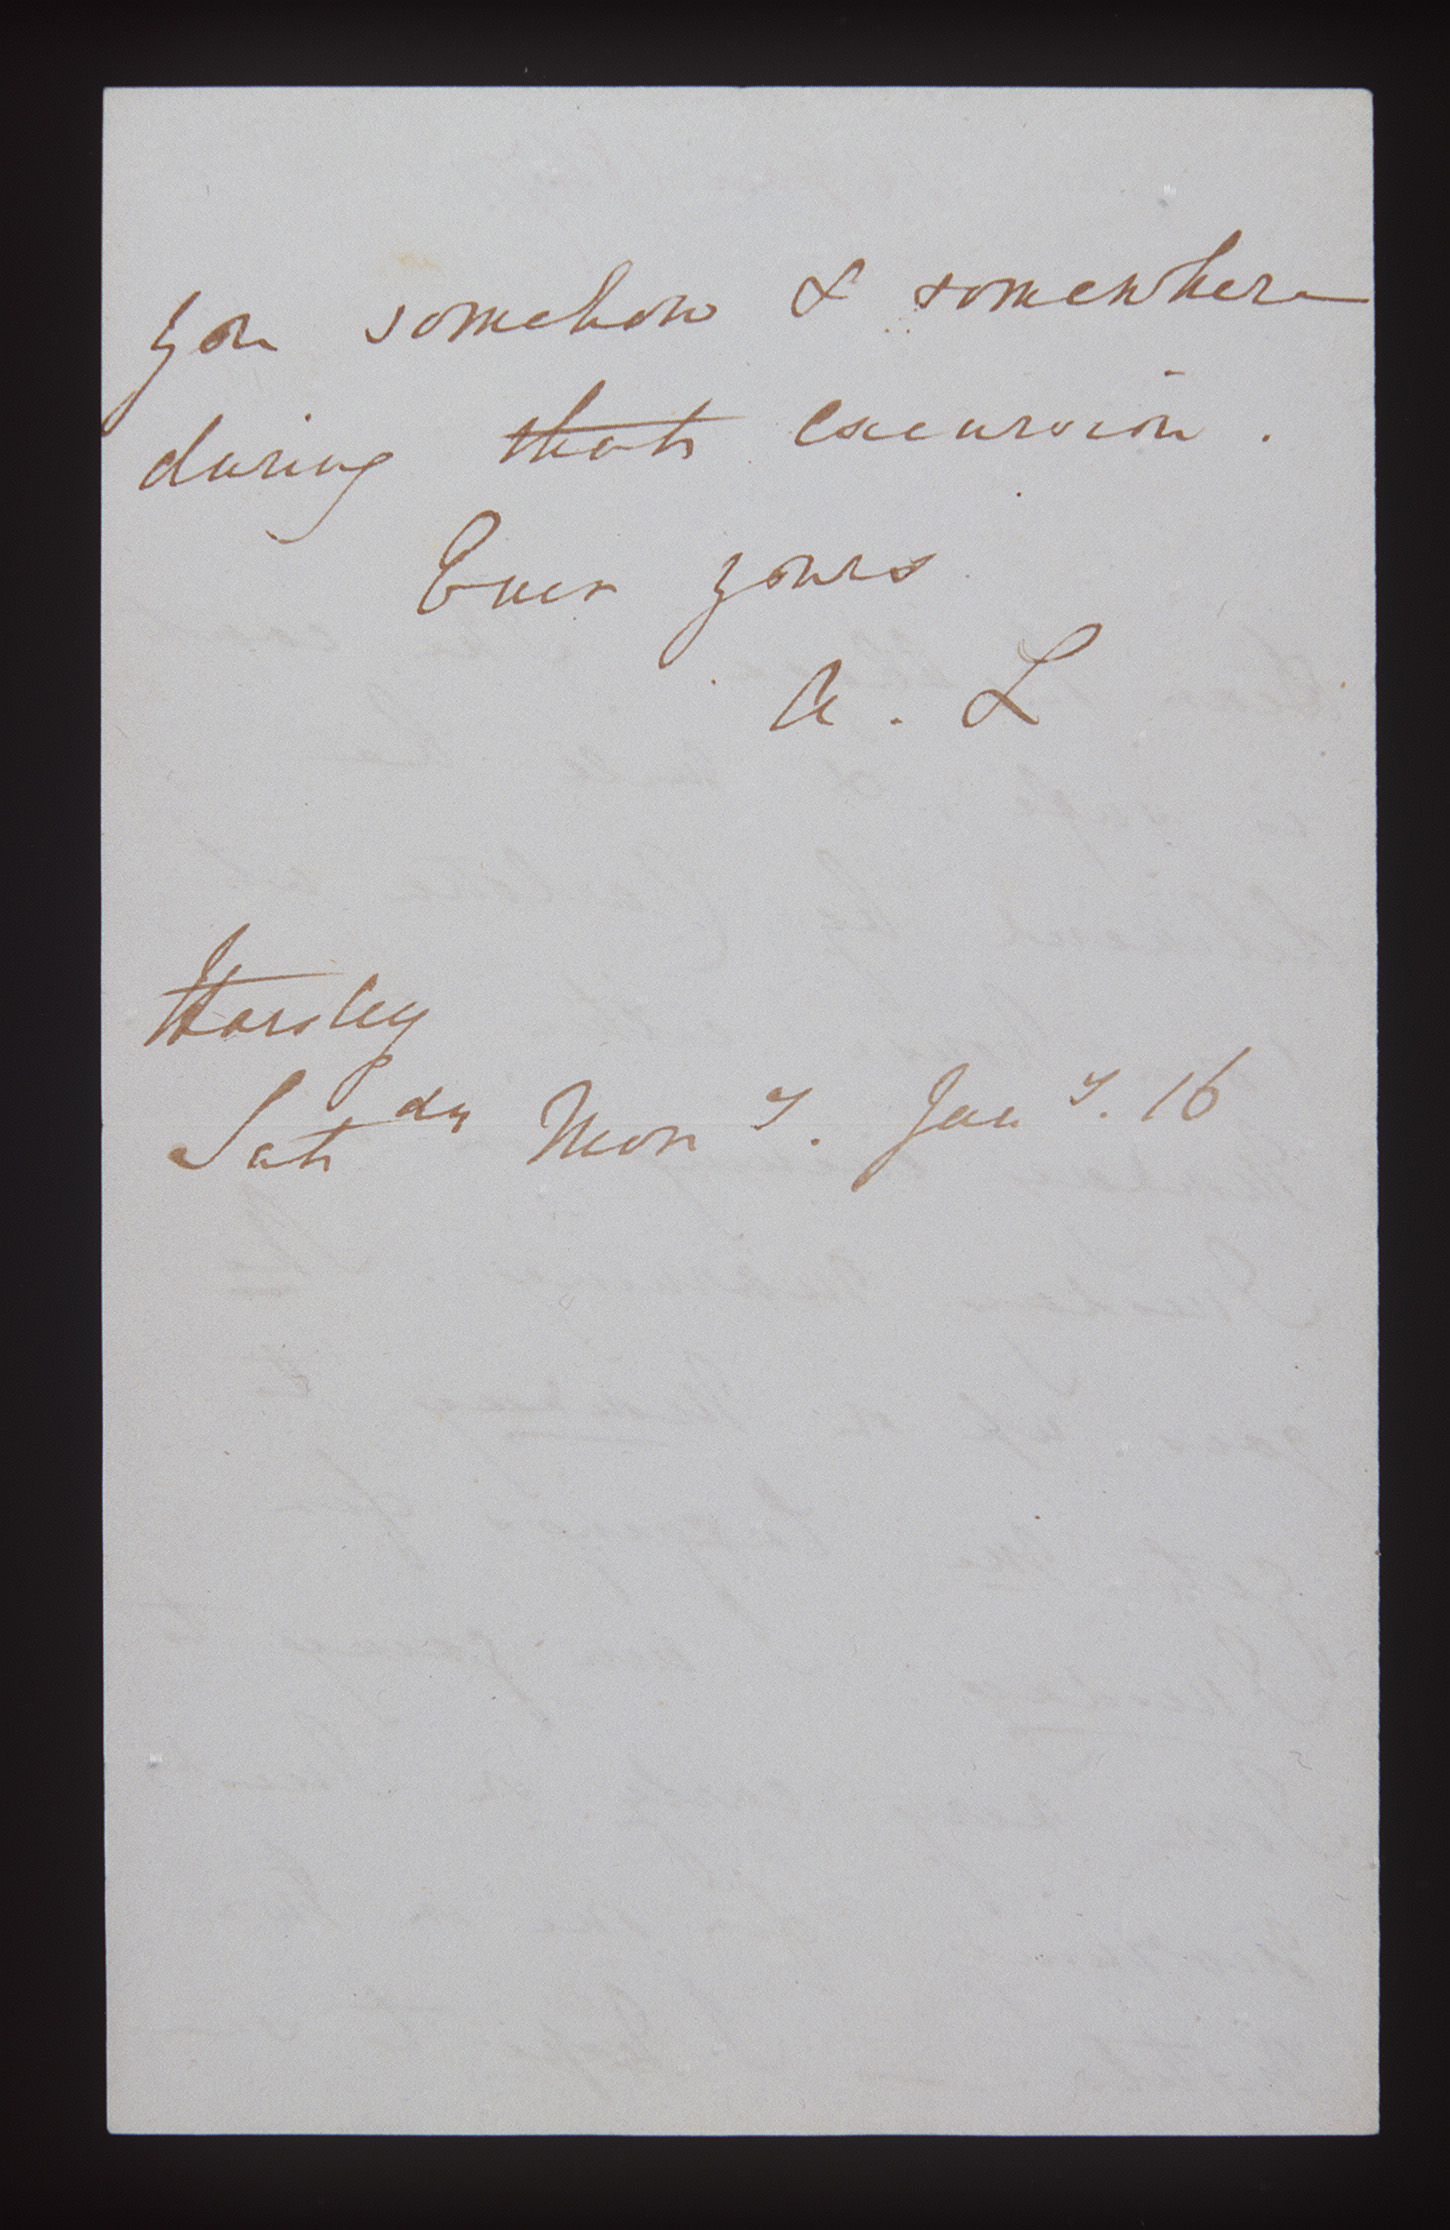 you somehow & somewhere
during that excursion.
Ever yours
A. L
Horsley
Satdy Morng. Jany. 16